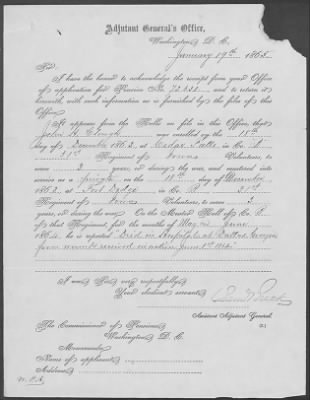 Adjutant General's Office,
Washington, D. C.
January 19th, 1865
Sir:
I have the honor to acknowledge the receipt from your Office
of application for Pension No. 72.633 and to return it
herewith, with such information as is furnished by the files of this
Office.
It appears from the Rolls on file in this Office, that
John H. was enrolled on the 18th
day of December 1863, at Cedar Falls in Co. B
31st Regiment of Iowa Volunteers, to
serve 3 years, or during the war, and mustered into
service as a private on the 19th day of December
1863, at Fort in Co. B 31st
Regiment of Iowa Volunteers, to serve 3
years, or during the war. On the Muster Roll of Co. B
of that Regiment, for the months of May & June
1864, he is reported Died in Hospital at Georgia
from wounds received in action June 1st 1864.
I am, Sir, very respectfully,
Your obedient servant,
Assistant Adjutant General.
The Commissioner of Pensions,
Washington, D. C.
Memoranda:
Name of applicant
Address